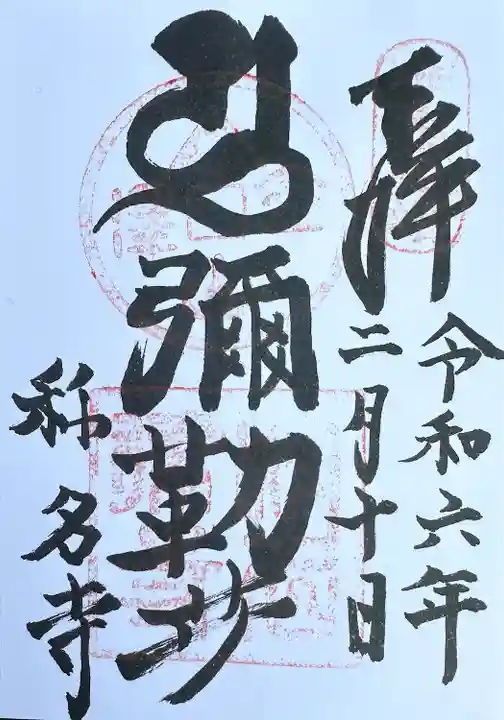 奉拝
令和六年
二月十日
彌勒𦬇
称名寺